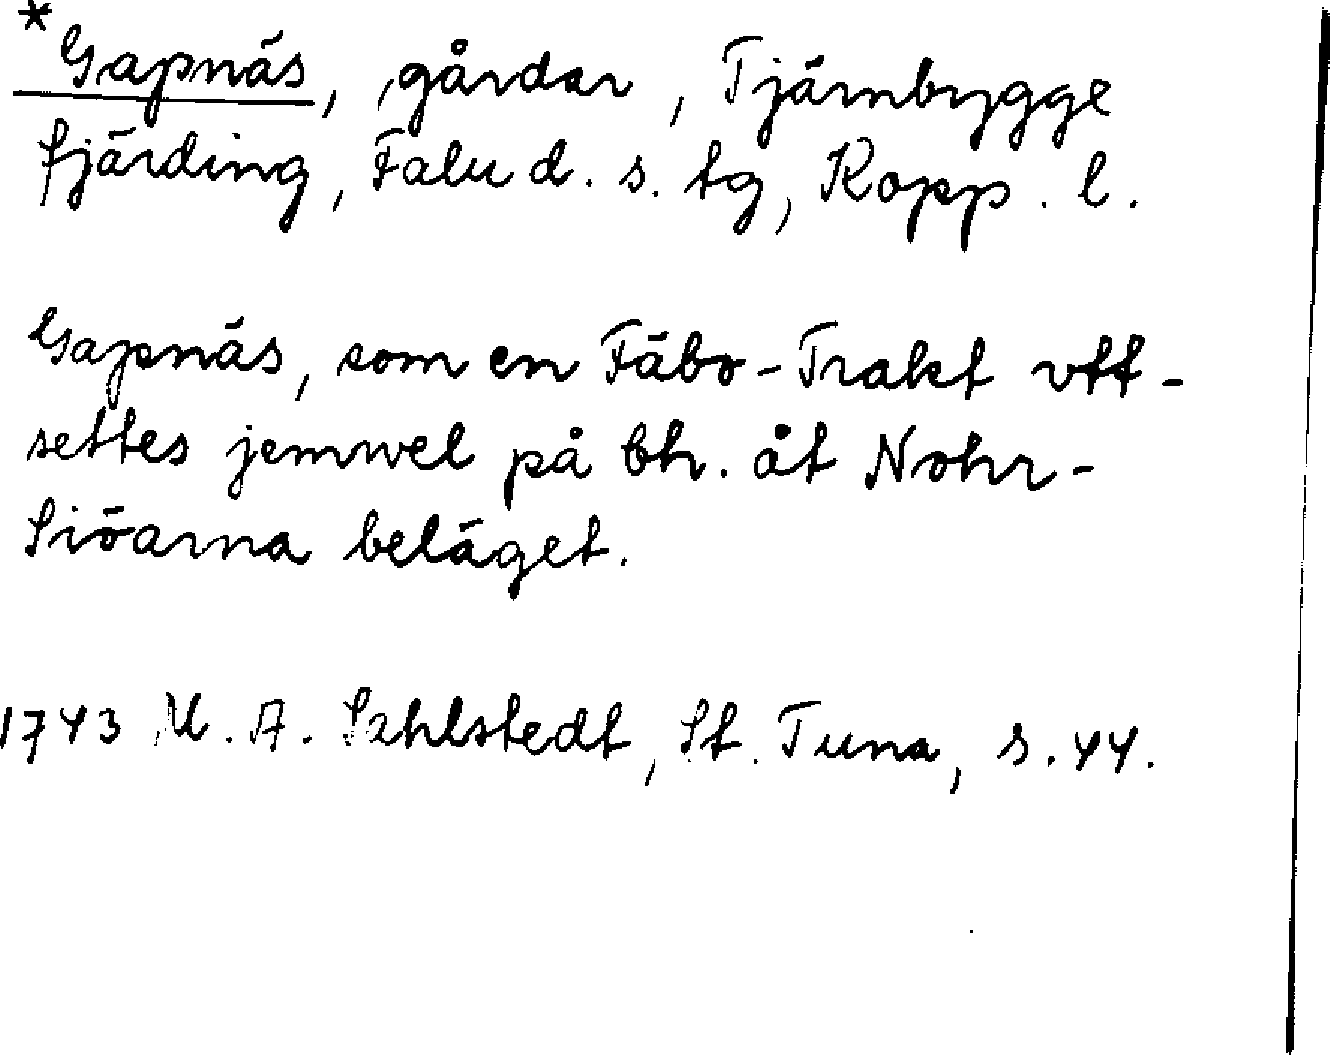 *Gapnäs, gårdar, Tjärnbygge
fjärding, Falu d. s. tg, Kopp. l.
Gapnäs, som en Fäbo-Trakt vtt-
settes jemwel på bh. åt Nohr-
Siöarna beläget.
1743 M. A. Sahlstedt, St. Tuna, s. 44.